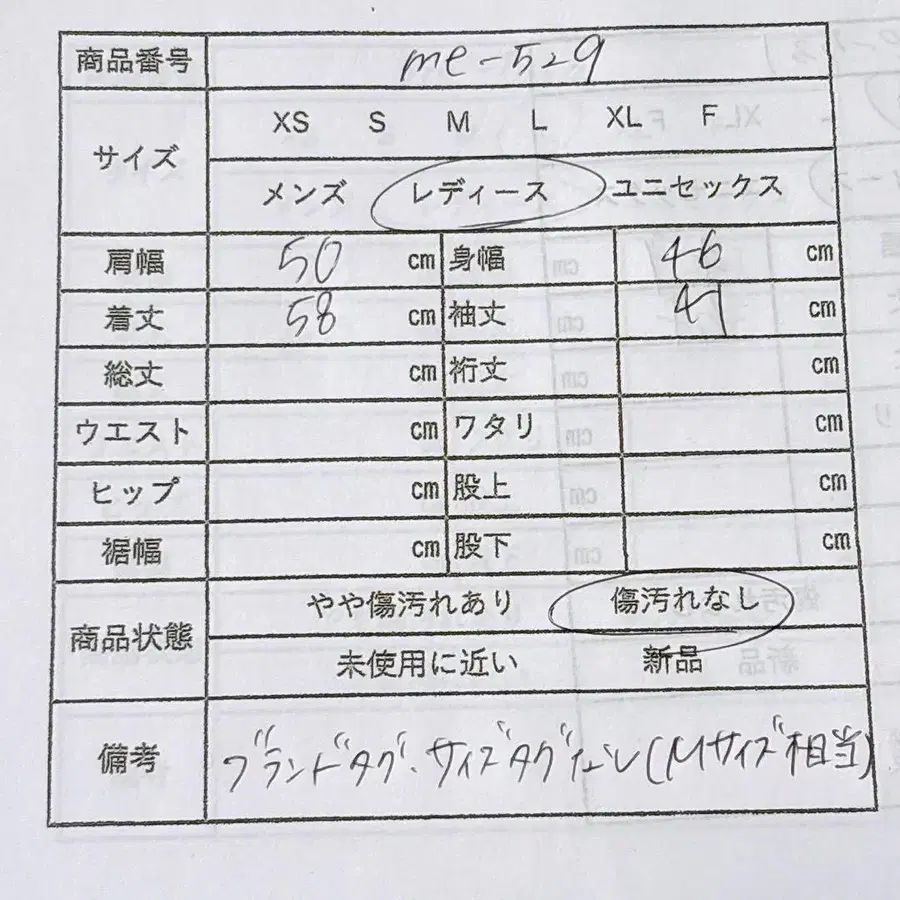 商品番号 me-529
サイズ XS S M L XL F
メンズ レディース ユニセックス
肩幅 50 cm 身幅 46 cm
着丈 58 cm 袖丈 47 cm
総丈 cm 裄丈 cm
ウエスト cm ワタリ cm
ヒップ cm 股上 cm
裾幅 cm 股下 cm
商品状態 やや傷汚れあり 傷汚れなし
未使用に近い 新品
備考 ブランドタグ・サイズタグなし(Mサイズ相当)